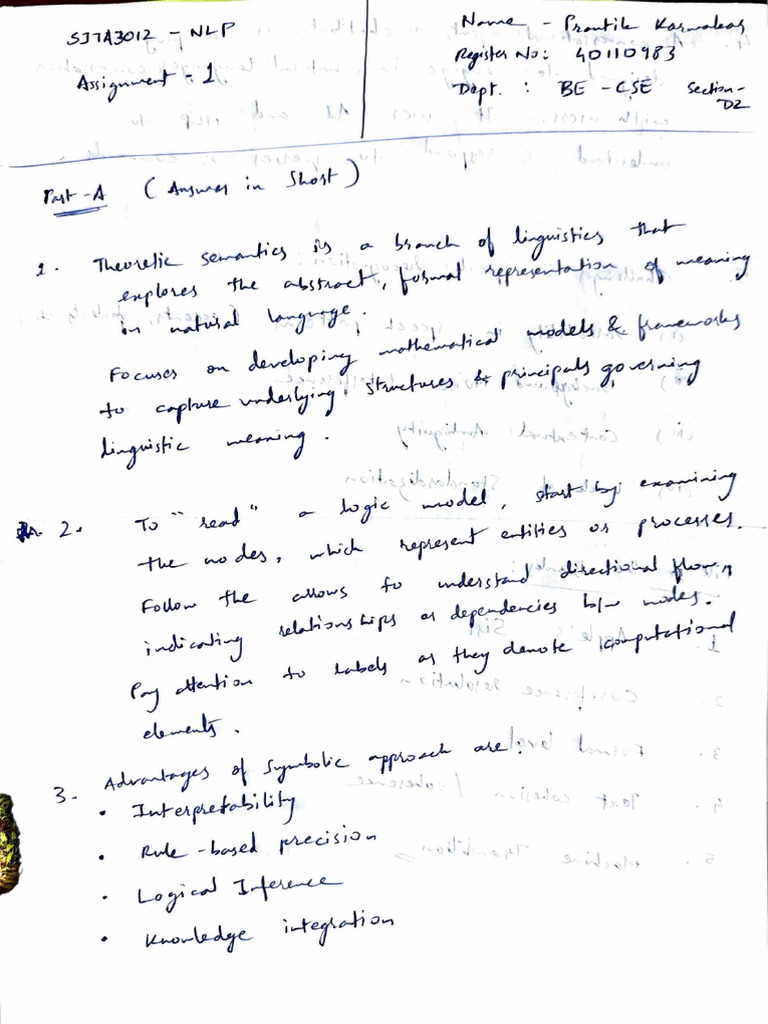 SITA3012 - NLP
Assignment - 1
Name - Prantik Karmakar
Register No: 40110983
Dept. : BE - CSE Section-
D2
Part-A (Answer in Short)
1. Theoretic semantics is a branch of linguistics that
explores the abstract, formal representation of meaning
in natural language.
Focuses on developing mathematical models & frameworks
to capture underlying structures & principals governing
linguistic meaning.
2. To "read" a logic model, start by examining
the nodes, which represent entities or processes.
Follow the arrows to understand directional flow,
indicating relationships or dependencies b/w nodes.
Pay attention to labels as they denote computational
elements.
3. Advantages of Symbolic approach are:
• Interpretability
• Rule-based precision
• Logical Inference
• Knowledge integration